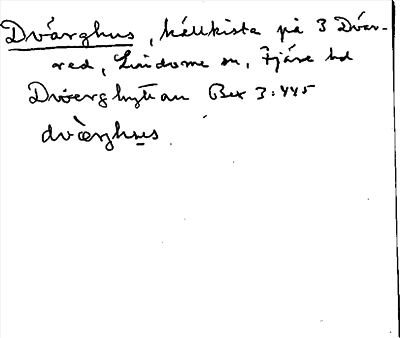 Dvärghus, hällkista på 3 Dvär-
red, Lindome sn, Fjäre hd
Dwerghyttan Bex 3:445
dværghus